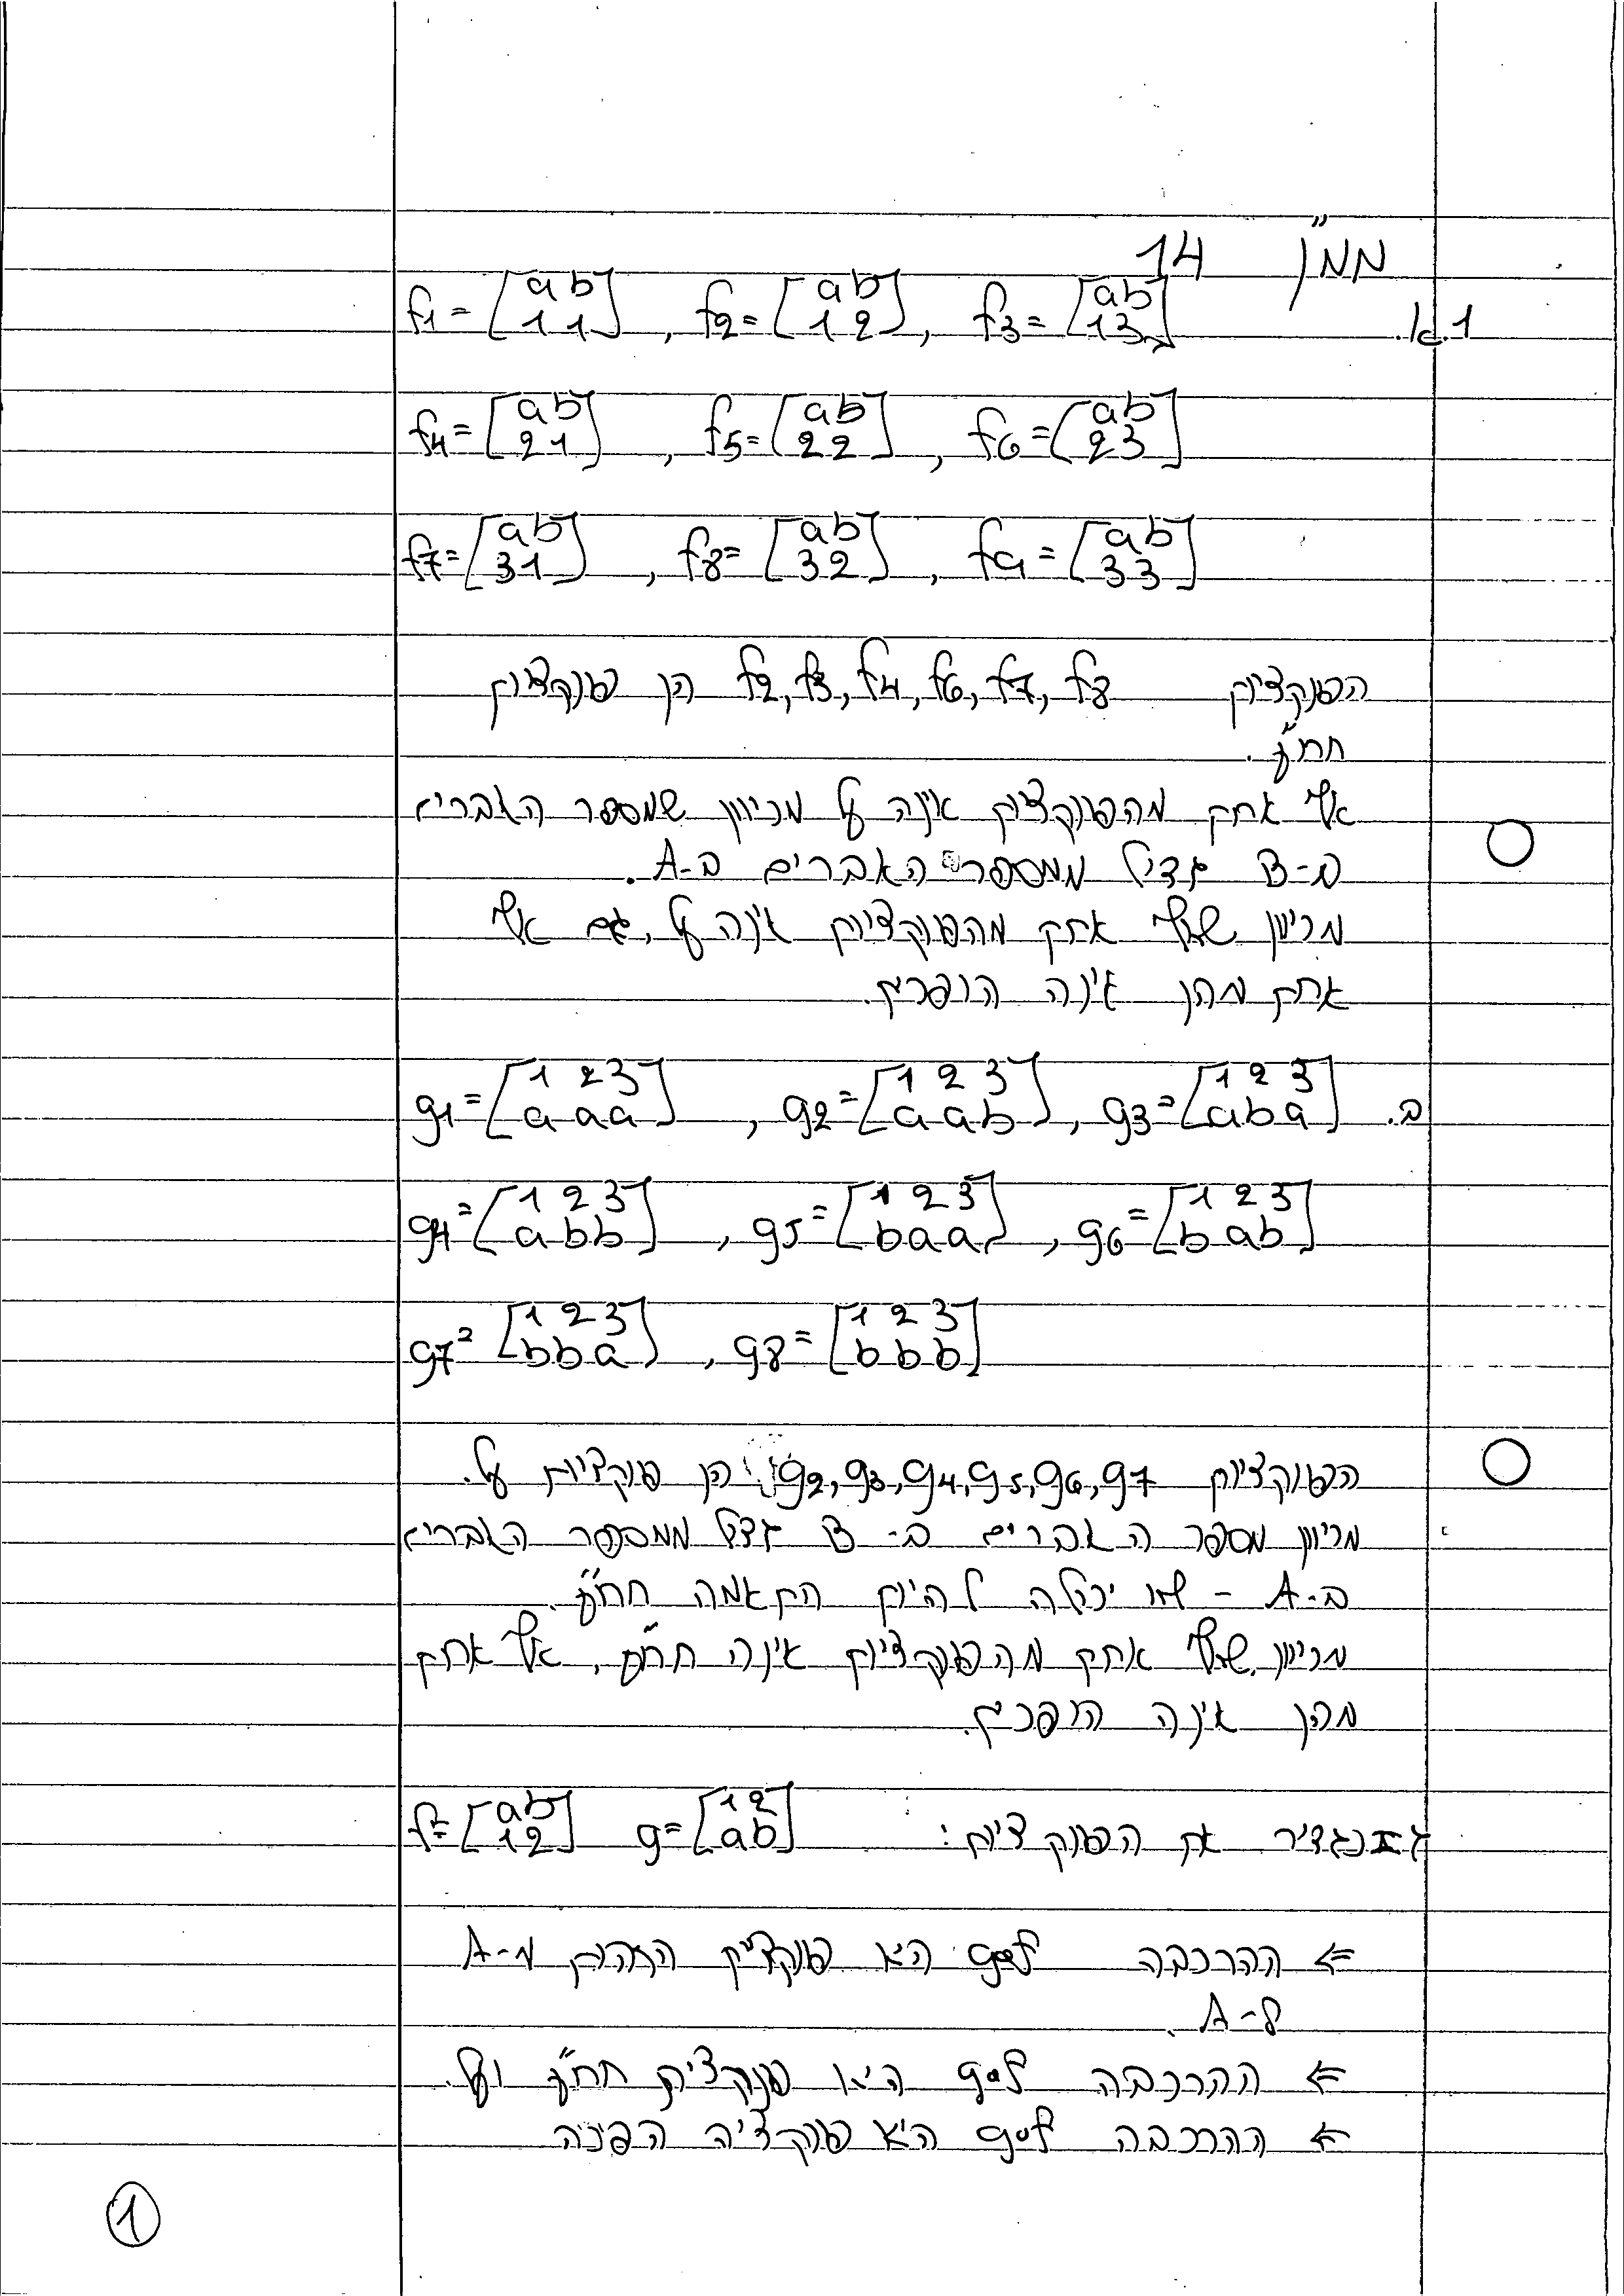 ממ"ן 14
1.א. f1 = [a b / 1 1], f2 = [a b / 1 2], f3 = [a b / 1 3]
f4 = [a b / 2 1], f5 = [a b / 2 2], f6 = [a b / 2 3]
f7 = [a b / 3 1], f8 = [a b / 3 2], f9 = [a b / 3 3]
הפונקציות f2, f3, f4, f6, f7, f8 הן פונקציות
חח"ע.
אף אחת מהפונקציות אינה על מכיוון שמספר האברים
ב-B גדול ממספר האברים ב-A.
מכיוון שאף אחת מהפונקציות אינה על, גם אף
אחת מהן אינה הופכית.
ב. g1 = [1 2 3 / a a a], g2 = [1 2 3 / a a b], g3 = [1 2 3 / a b a]
g4 = [1 2 3 / a b b], g5 = [1 2 3 / b a a], g6 = [1 2 3 / b a b]
g7 = [1 2 3 / b b a], g8 = [1 2 3 / b b b]
הפונקציות g2, g3, g4, g5, g6, g7 הן פונקציות על.
מכיוון מספר האברים ב-B גדול ממספר האברים
ב-A - לא יכולה להיות התאמה חח"ע.
מכיוון שאף אחת מהפונקציות אינה חח"ע, אף אחת
מהן אינה הופכית.
ג. נגדיר את הפונקציות: f = [a b / 1 2] g = [1 2 / a b]
⇐ ההרכבה gof היא פונקצית הזהות מ-A
ל-A.
⇐ ההרכבה gof היא פונקצית חח"ע ועל.
⇐ ההרכבה gof היא פונקציה הפיכה
1